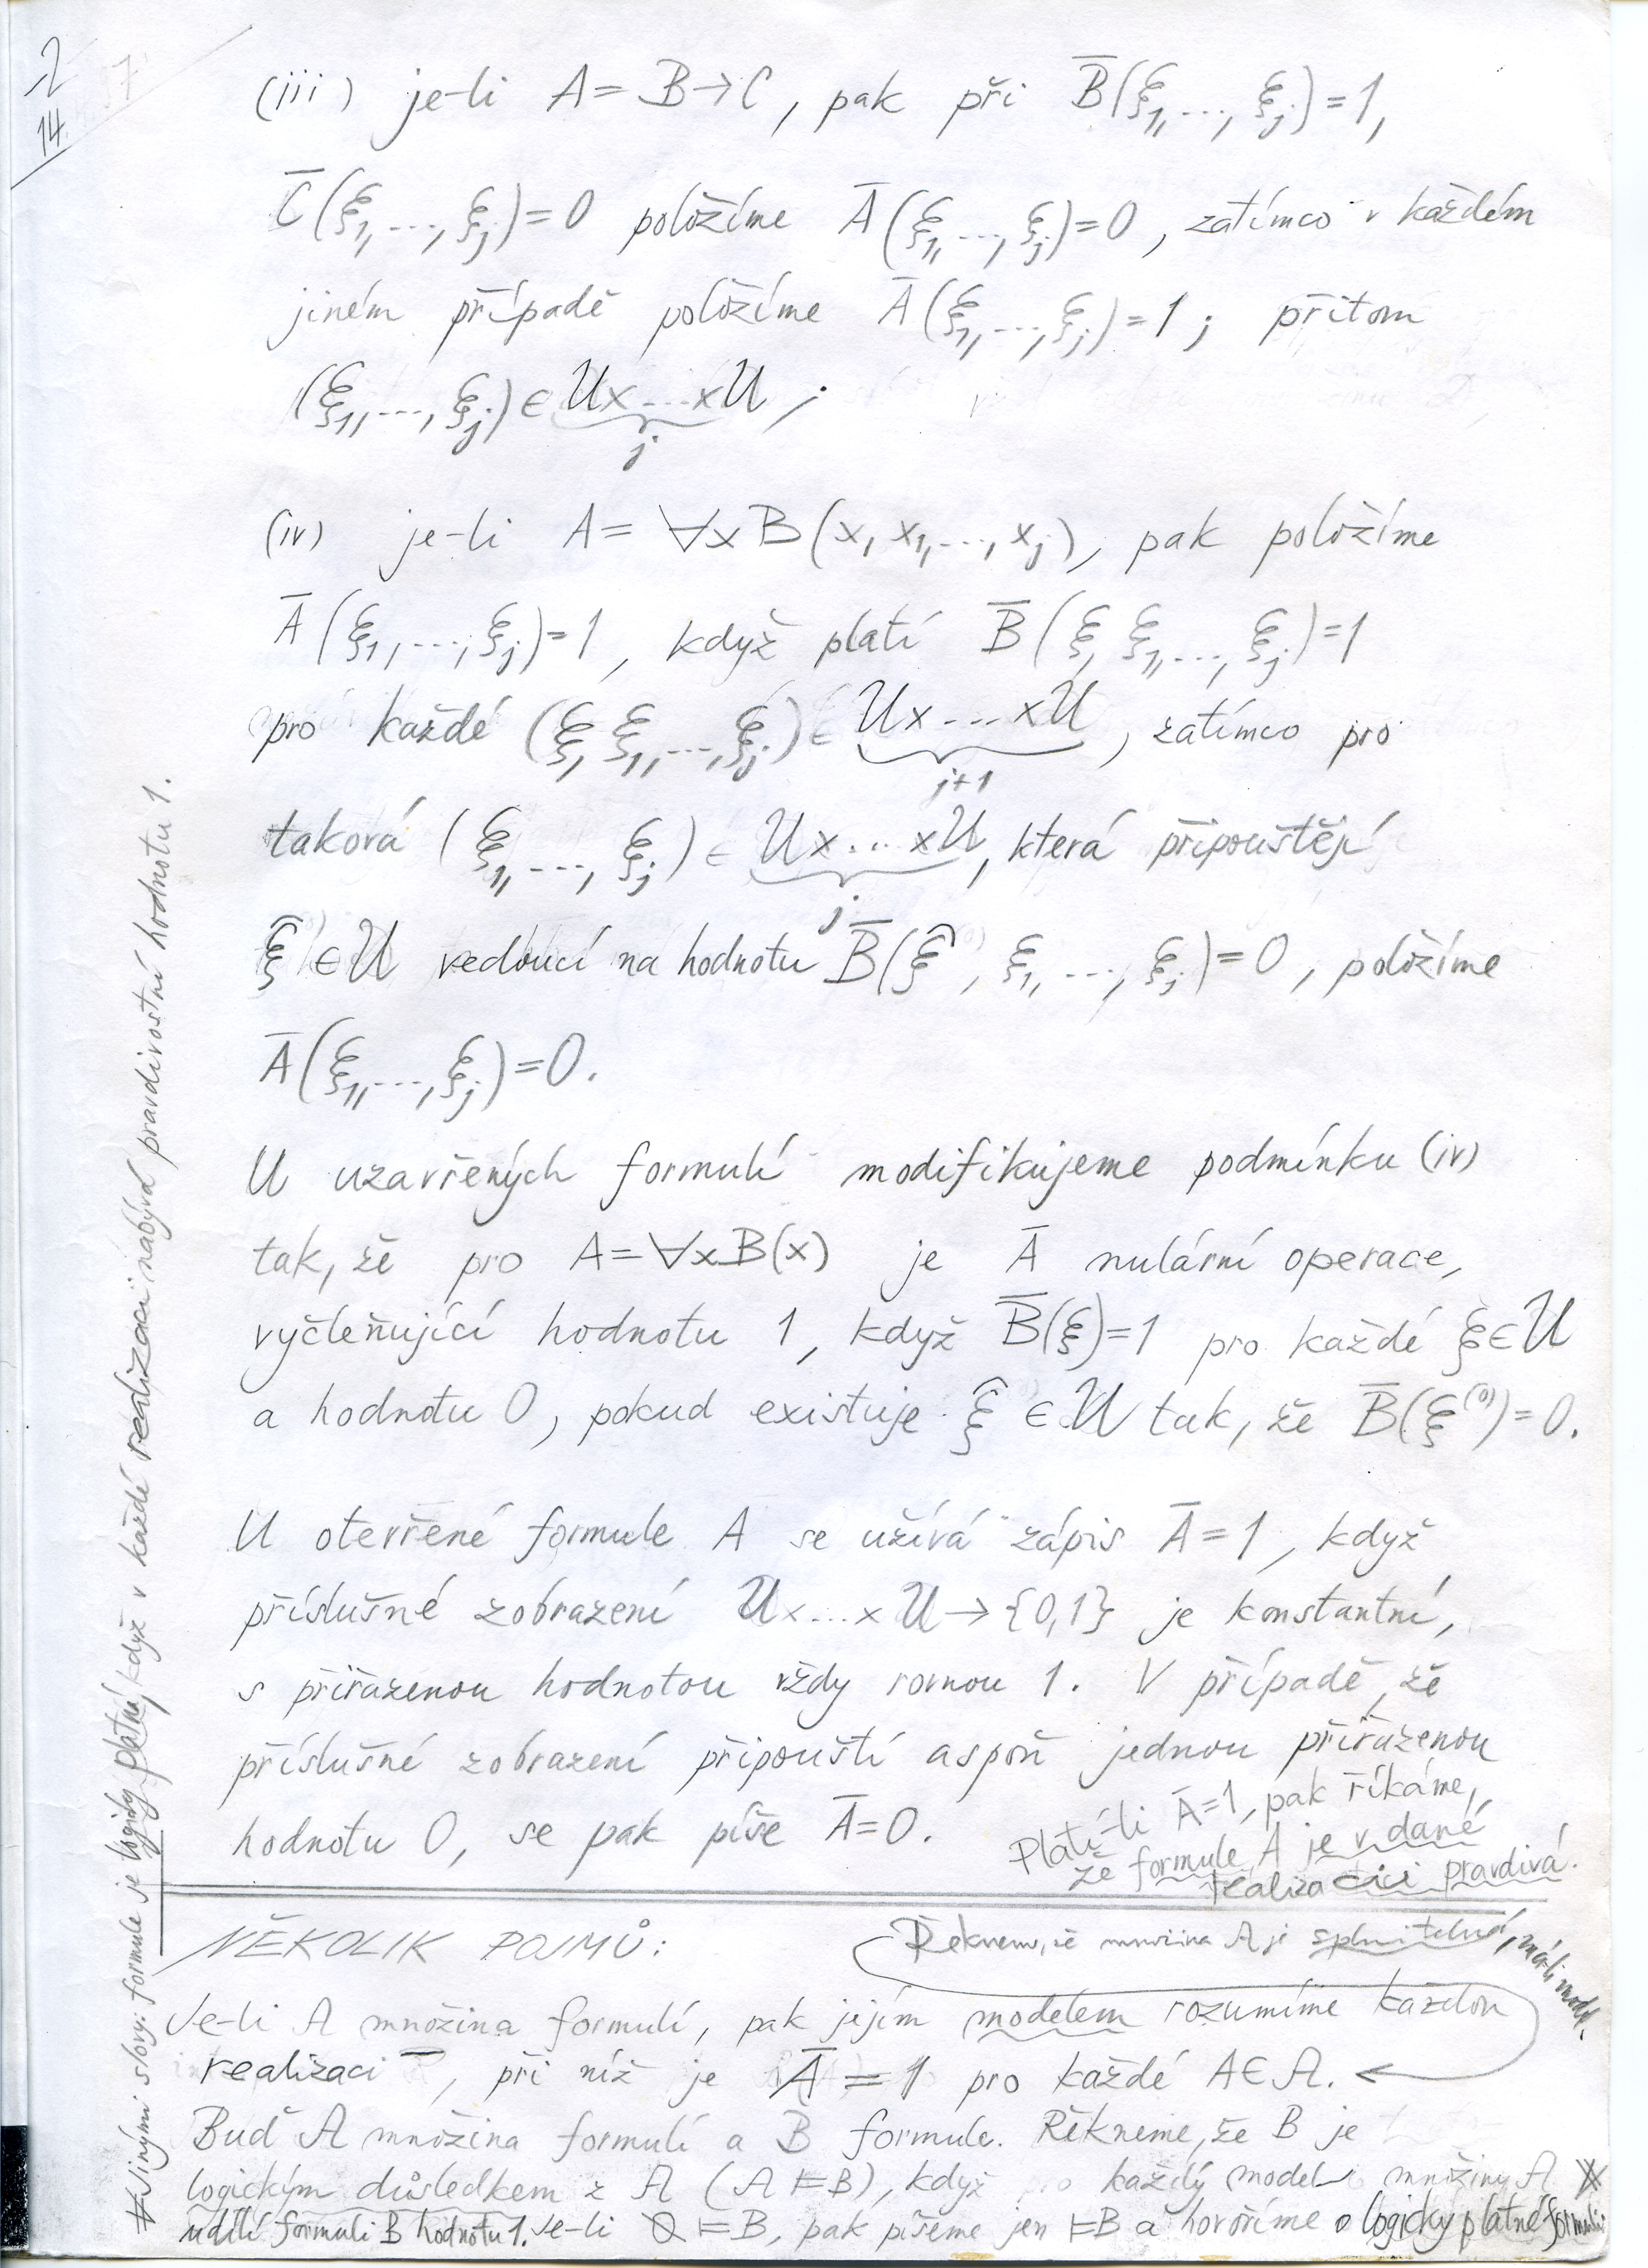 2
14
(iii) je-li A = B→C, pak při B̅(ξ₁,...,ξⱼ)=1,
C̅(ξ₁,...,ξⱼ)=0 položíme A̅(ξ₁,...,ξⱼ)=0, zatímco v každém
jiném případě položíme A̅(ξ₁,...,ξⱼ)=1; přitom
(ξ₁,...,ξⱼ)∈U×...×U;
j
(iv) je-li A = ∀xB(x, x₁,...,xⱼ), pak položíme
A̅(ξ₁,...,ξⱼ)=1, když platí B̅(ξ, ξ₁,...,ξⱼ)=1
pro každé (ξ, ξ₁,...,ξⱼ)∈U×...×U, zatímco pro
j+1
taková (ξ₁,...,ξⱼ)∈U×...×U, která připouštějí
j
ξ̂∈U vedoucí na hodnotu B̅(ξ̂, ξ₁,...,ξⱼ)=0, položíme
A̅(ξ₁,...,ξⱼ)=0.
U uzavřených formulí modifikujeme podmínku (iv)
tak, že pro A=∀xB(x) je A̅ nulární operace,
vyčleňující hodnotu 1, když B̅(ξ)=1 pro každé ξ∈U
a hodnotu 0, pokud existuje ξ̂∈U tak, že B̅(ξ⁽⁰⁾)=0.
U otevřené formule A se užívá zápis A̅=1, když
příslušné zobrazení U×...×U→{0,1} je konstantní,
s přiřazenou hodnotou vždy rovnou 1. V případě, že
příslušné zobrazení připouští aspoň jednou přiřazenou
hodnotu 0, se pak píše A̅=0.
Platí-li A̅=1, pak říkáme,
že formule A je v dané
realizaci pravdivá.
NĚKOLIK POJMŮ:
Řekneme, že množina A je splnitelná, má-li model.
Je-li A množina formulí, pak jejím modelem rozumíme každou
realizaci ‾, při níž je A̅ = 1 pro každé A∈A.
Buď A množina formulí a B formule. Řekneme, že B je
logickým důsledkem z A (A⊨B), když každý model množiny A
udílí formuli B hodnotu 1. Je-li ∅⊨B, pak píšeme jen ⊨B a hovoříme o logicky platné formuli
# Jinými slovy: formule je logicky platná, když v každé realizaci nabývá pravdivostní hodnotu 1.